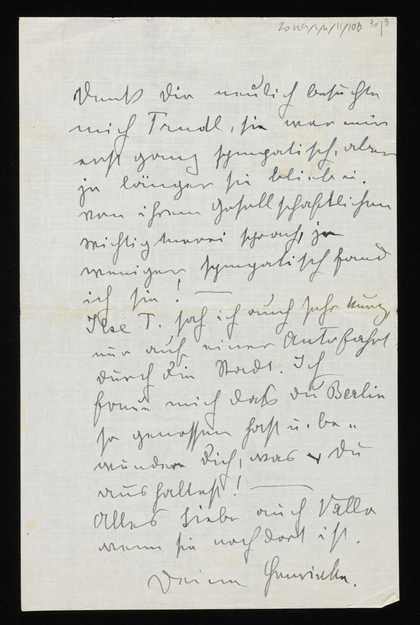 Denk Dir neulich besuchte
mich Trudl, sie war mir
erst ganz sympatisch, aber
je länger sie blieb u.
von ihren gesellschaftlichen
wichtigtuerei sprach, je
weniger sympatisch fand
ich sie! —
Ilse T. sah ich auch sehr kurz
nur auf einer Autofahrt
durch die Stadt. Ich
freue mich daß du Berlin
so genossen hast u. be-
wundere Dich, was Du
aushaltest! —
Alles Liebe auch Valla
wenn sie noch dort ist.
Deine